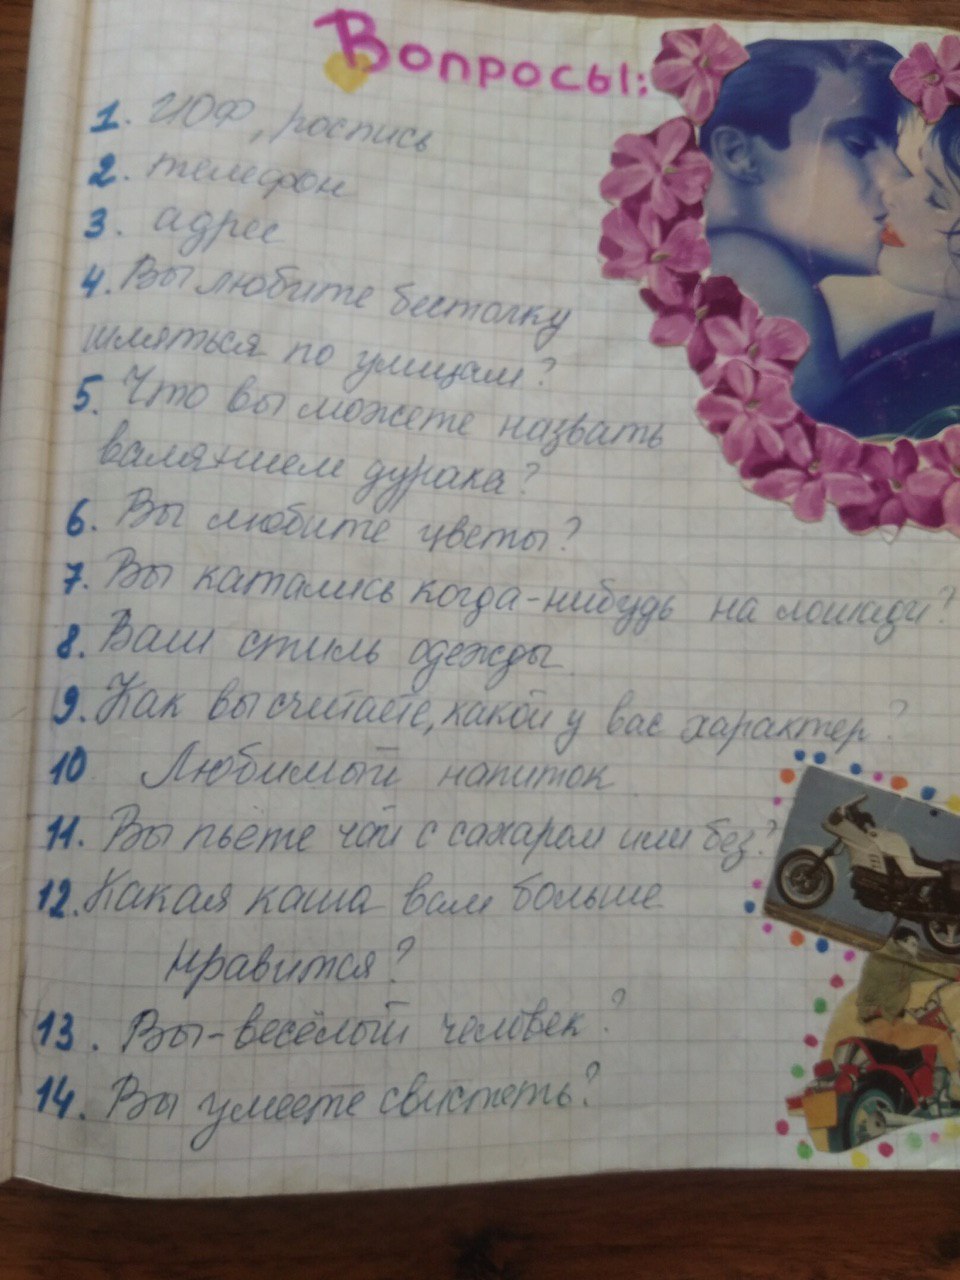 Вопросы:
1. ИОФ, роспись
2. телефон
3. адрес
4. Вы любите бестолку
шляться по улицам?
5. Что вы можете назвать
валянием дурака?
6. Вы любите цветы?
7. Вы катались когда-нибудь на лошади?
8. Ваш стиль одежды
9. Как вы считаете, какой у вас характер?
10 Любимый напиток
11. Вы пьёте чай с сахаром или без?
12. Какая каша вам больше
нравится?
13. Вы-весёлый человек?
14. Вы умеете свистеть?